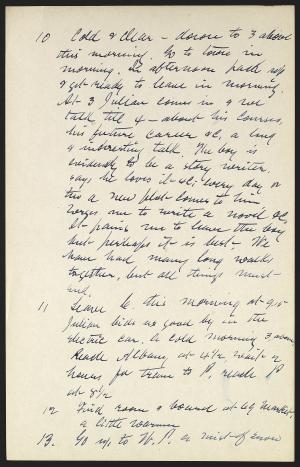 10 Cold & clear - down to 3 above
this morning. Go to town in
morning. In afternoon pack up
& get ready to leave in morning.
At 3 Julian comes in & we
talk till 4 - about his courses,
his future career &c, a long
& interesting talk. The boy is
evidently to be a story writer,
says he loves it &c; every day or
two a new plot comes to him.
Urges me to write a novel &c.
It pains me to leave the boy
but perhaps it is best. We
have had many long walks
together, but all things must
end.
11 Leave C. this morning at 9 15
Julian bids me good by in the
electric car. A cold morning 3 above
Reach Albany at 4 1/2 wait 2
hours for train to P. reach P
at 8 1/2
12 Find room & board at 69 Market.
a little warmer
13. Go up to W. P. a mist of snow